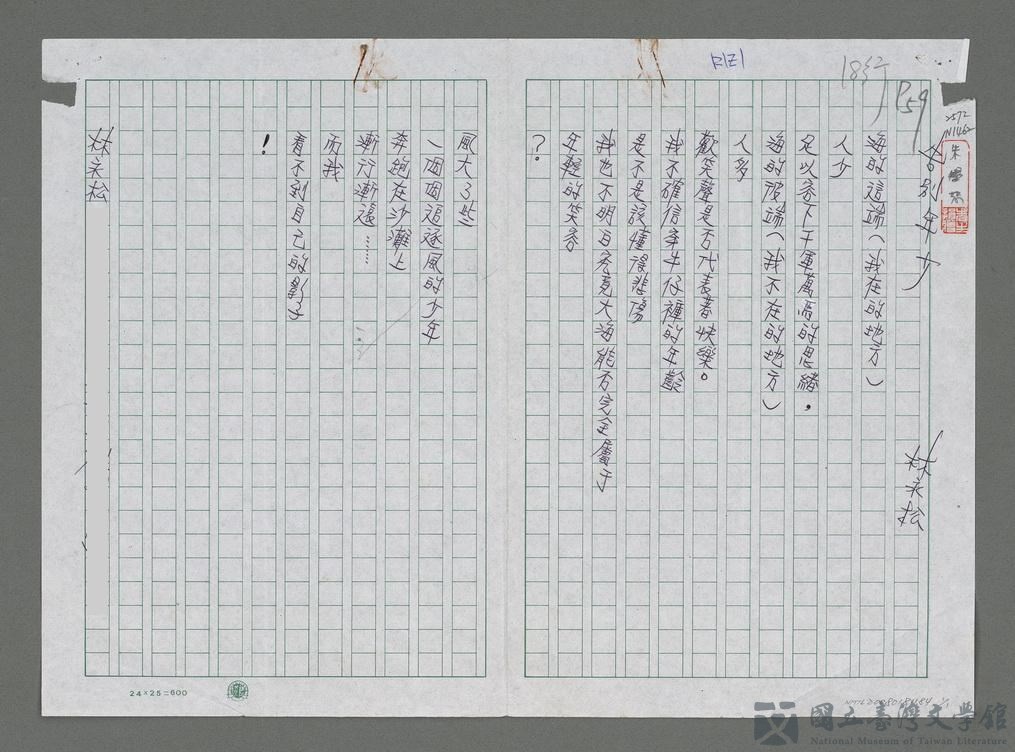 18行
P59
2572
N1462
告別年少
林永松
海的這端(我在的地方)
人少
足以容下千軍萬馬的思緒,
海的彼端(我不在的地方)
人多
歡笑聲是否代表著快樂。
我不確信穿牛仔褲的年齡
是不是該懂得悲傷
我也不明白究竟大海能否完全屬于
年輕的笑容
?
風大了些
一個個追逐風的少年
奔跑在沙灘上
漸行漸遠……
而我
看不到自己的影子
!
林永松
24×25=600
國立臺灣文學館
National Museum of Taiwan Literature